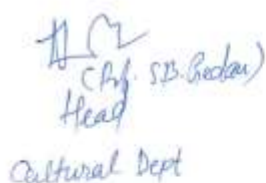 (Prof. S.B.
Head
Cultural Dept